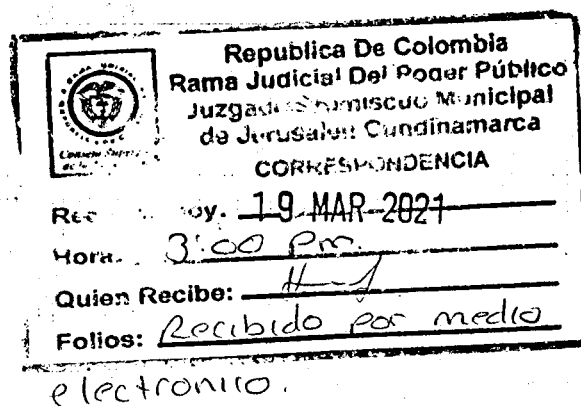 Republica De Colombia
Rama Judicial Del Poder Público
Juzgado Promiscuo Municipal
de Jerusalen Cundinamarca
CORRESPONDENCIA
19 MAR 2021
Hora. 3:00 Pm.
Quien Recibe:
Folios: Recibido por medio
electronico.